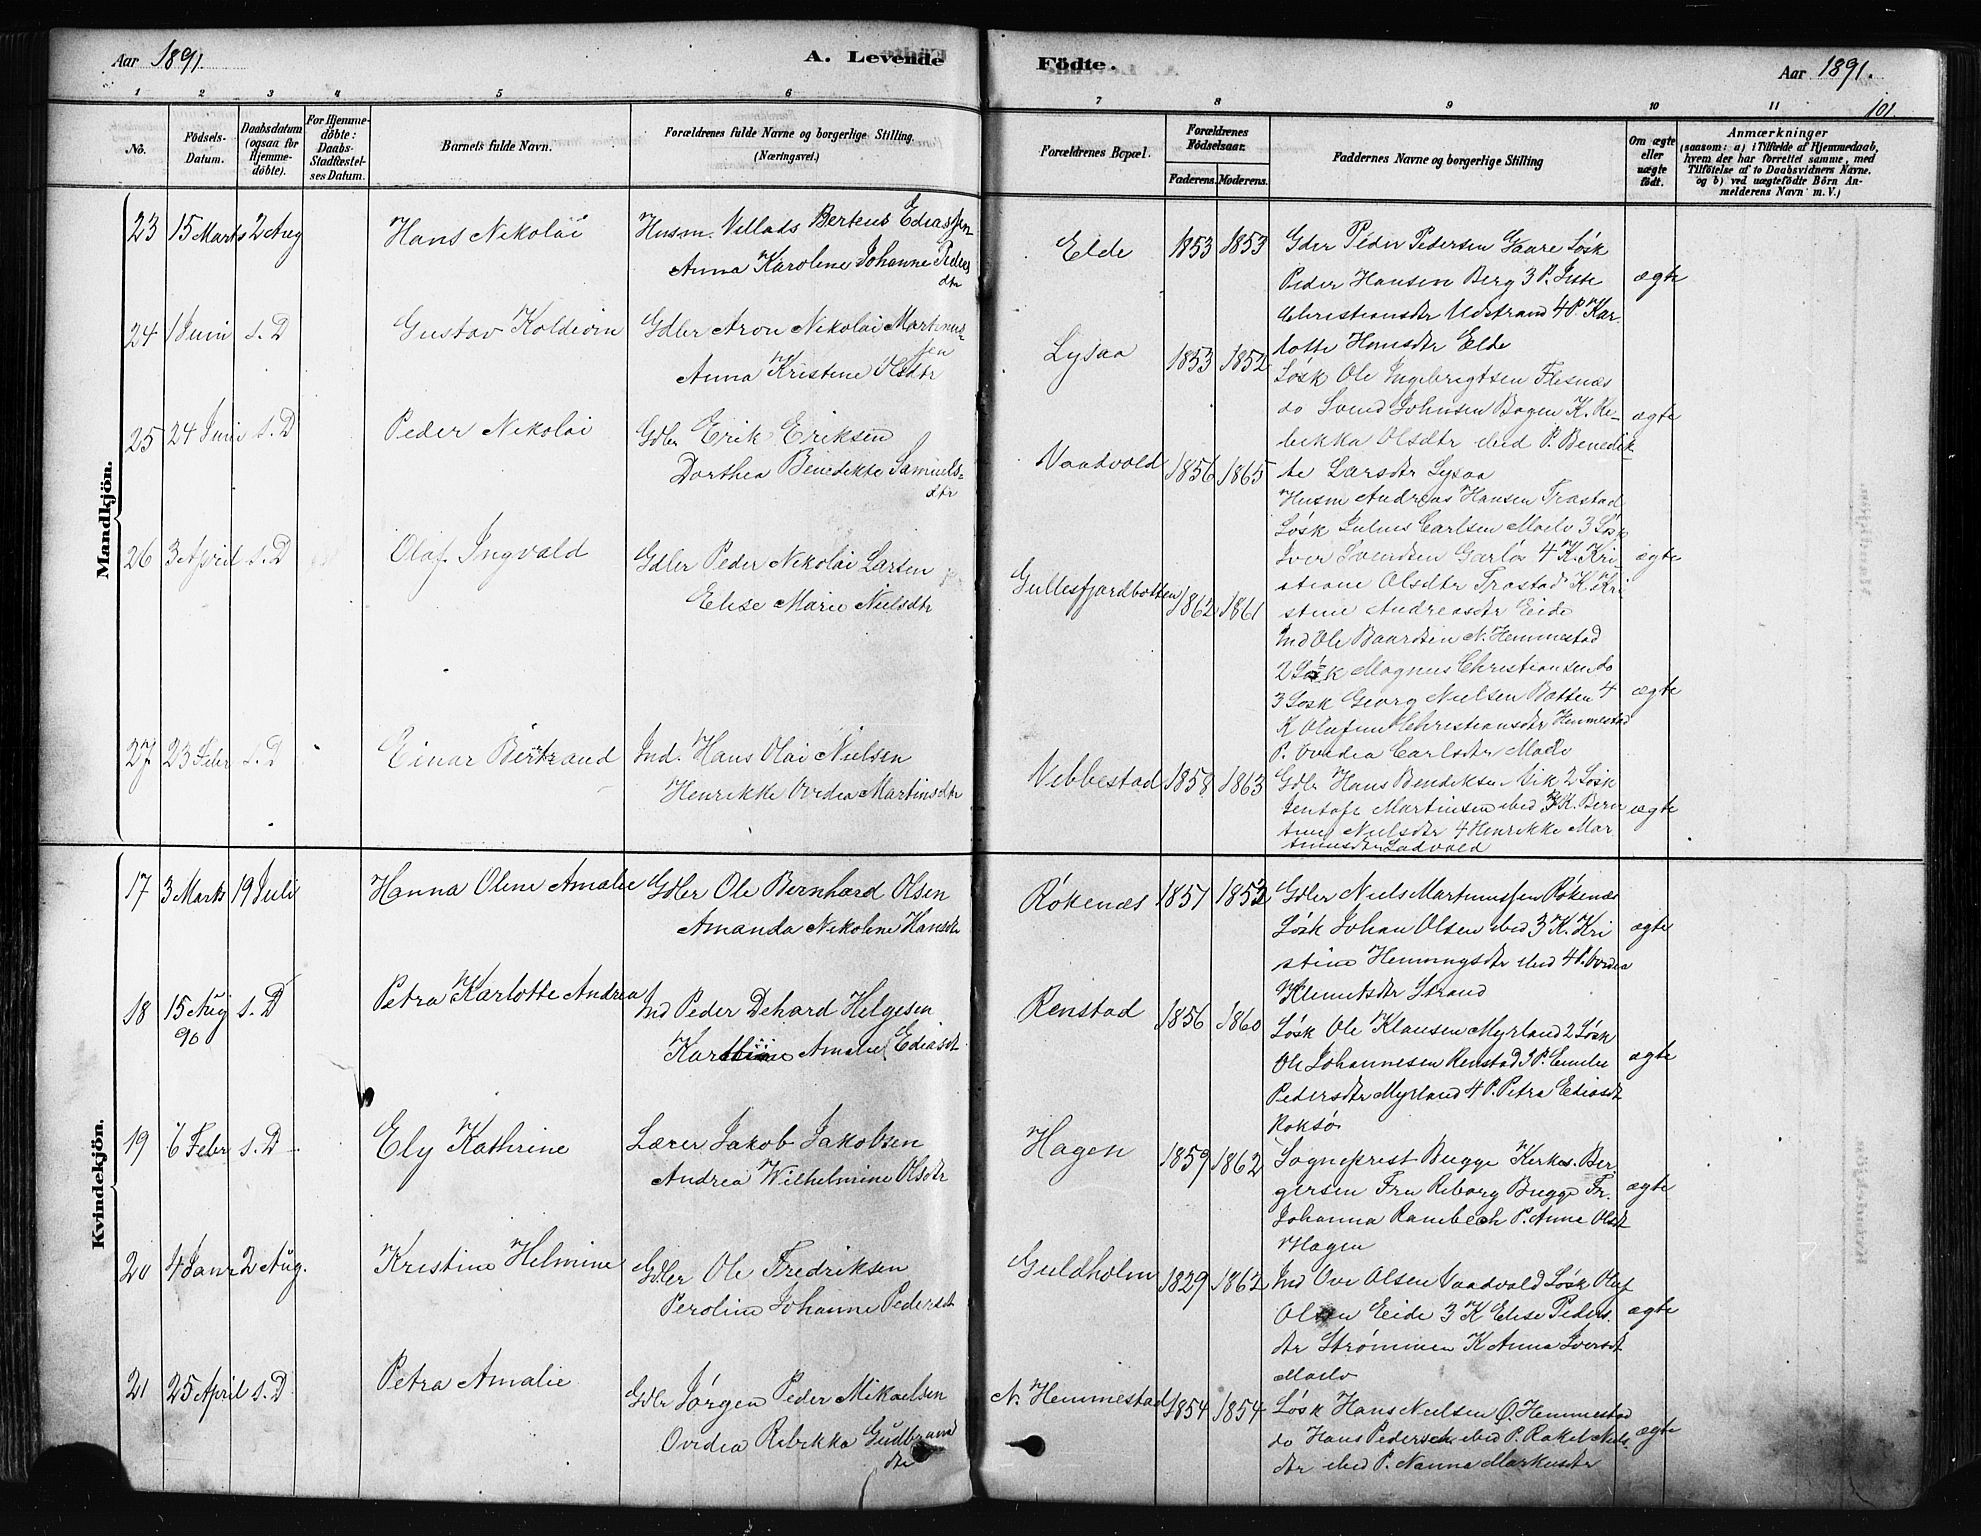 Aar 1891.
A. Levende
Födte.
Aar 1891.
101.
1 2 3 4 5 6 7 8 9 10 11
No.
Födsels-
Datum.
Daabsdatum
(ogsaa for
Hjemme-
döbte).
For Hjemme-
döbte:
Daabs-
Stadfæstel-
ses Datum.
Barnets fulde Navn.
Forældrenes fulde Navne og borgerlige Stilling.
(Næringsvei.)
Forældrenes Bopæl.
Forældrenes
Födselsaar.
Faderens. Moderens.
Faddernes Navne og borgerlige Stilling
Om ægte
eller
uægte
födt.
Anmærkninger
(saasom: a) i Tilfælde af Hjemmedaab,
hvem der har forrettet samme, med
Tilföielse af to Daabsvidners Navne.
og b) ved uægtefödte Börn An-
melderens Navn m. V.)
Mandkjön.
23 15 Marts 2 Aug
Hans Nikolai
Husm. Villads Berteus Ediassen
Anna Karoline Johanne Peders
dtr
Elde
1853 1853
Gder Peder Pedersen Gaare Løsk
Peder Hansen Berg 3 P.
Christiansdtr Udstrand 4 P. Kar-
lotte Hansdtr Elde
ægte
24 1 Juni s. D
Gustav Koldevin
Gdler Aron Nikolai Martinus-
sen
Anna Kristine Olsdtr
Lysaa
1853 1852
Løsk Ole Ingebrigtsen Flesnæs
do Svend Johnsen Bogen K. Re-
bekka Olsdtr ibid P. Benedik-
te Larsdtr Lysaa
ægte
25 24 Juni s. D
Peder Nikolai
Gdlr Erik Eriksen
Dorthea Benedikte Samuels-
dtr
Vaadvold
1856 1865
Husm Andreas Hansen Trastad
Løsk Julius Carlsen Moelv 3 Løsk
Iver Svendsen Garløs 4 K. Kri-
stiane Olsdtr Trastad K. Kri
stine Andreasdtr Eide
ægte
26 3 April s. D
Olaf Ingvald
Gdler Peder Nikolai Larsen
Elise Marie Nielsdtr
Gullesfjordbotten
1862 1861
Ind Ole Baardsen N. Hemmestad
2 Løsk Magnus Christiansen do
3 Løsk Georg Nielsen Botten 4
K Olufine Christiansdtr Hemmestad
P. Ovedia Carlsdtr Moelv
ægte
27 23 Febr s. D
Einar Bertrand
Ind. Hans Olai Nielsen
Henrikke Ovedia Martinsdtr
Vebbestad
1858 1863
Gdlr Hans Bendiksen Vik 2 Løsk
Jentoft Martinsen ibid 3 K. Beren
tine Nielsdtr 4 Henrikke Mar
tinusdtr Ladvold
ægte
Kvindekjön.
17 3 Marts 19 Juli
Hanna Oline Amalie
Gdler Ole Bernhard Olsen
Amanda Nikoline Hansdtr
Rökenæs
1857 1852
Gdler Niels Martinussen Rökenæs
Løsk Johan Olsen ibid 3 K. Kri
stine Henningsdtr ibid 4 P. Ovedia
Klemetsdtr Strand
ægte
18 15 Aug
90 s. D
Petra Karlotte Andrea
Ind Peder Dehard Helgesen
Amalie Ediasdt
Renstad
1856 1860
Løsk Ole Klausen Myrland 2 Løsk
Ole Johannesen Renstad 3 P. Emilie
Pedersdtr Myrland 4 P. Petra Ediasdt
Roksø
ægte
19 6 Febr s. D
Ely Kathrine
Lærer Jakob Jakobsen
Andrea Wilhelmine Olsdtr
Hagen
1859 1862
Sogneprest Bugge Kirkes. Ber
gersen Fru Reborg Bugge Fr.
Johanna Rambech P. Anne Olsdt
Hagen
ægte
20 4 Janr 2 Aug.
Kristine Helmine
Gdler Ole Fredriksen
Peroline Johanne Pedersdt
Guldholm
1829 1862
Ind Ove Olsen Vaadvold Løsk Oluf
Olsen Eide 3 K Elise Peders
dtr Strømmen K Anna Iversdt
Moelv
ægte
21 25 April s. D
Petra Amalie
Gdlr Jörgen Peder Mikaelsen
Ovedia Rebekka Gudbrand
dtr
N. Hemmestad
1854 1854
Løsk Hans Nielsen Ø. Hemmestad
do Hans Pedersen ibid P. Rakel Niels
dtr ibid P. Nanna Markusdtr
ægte